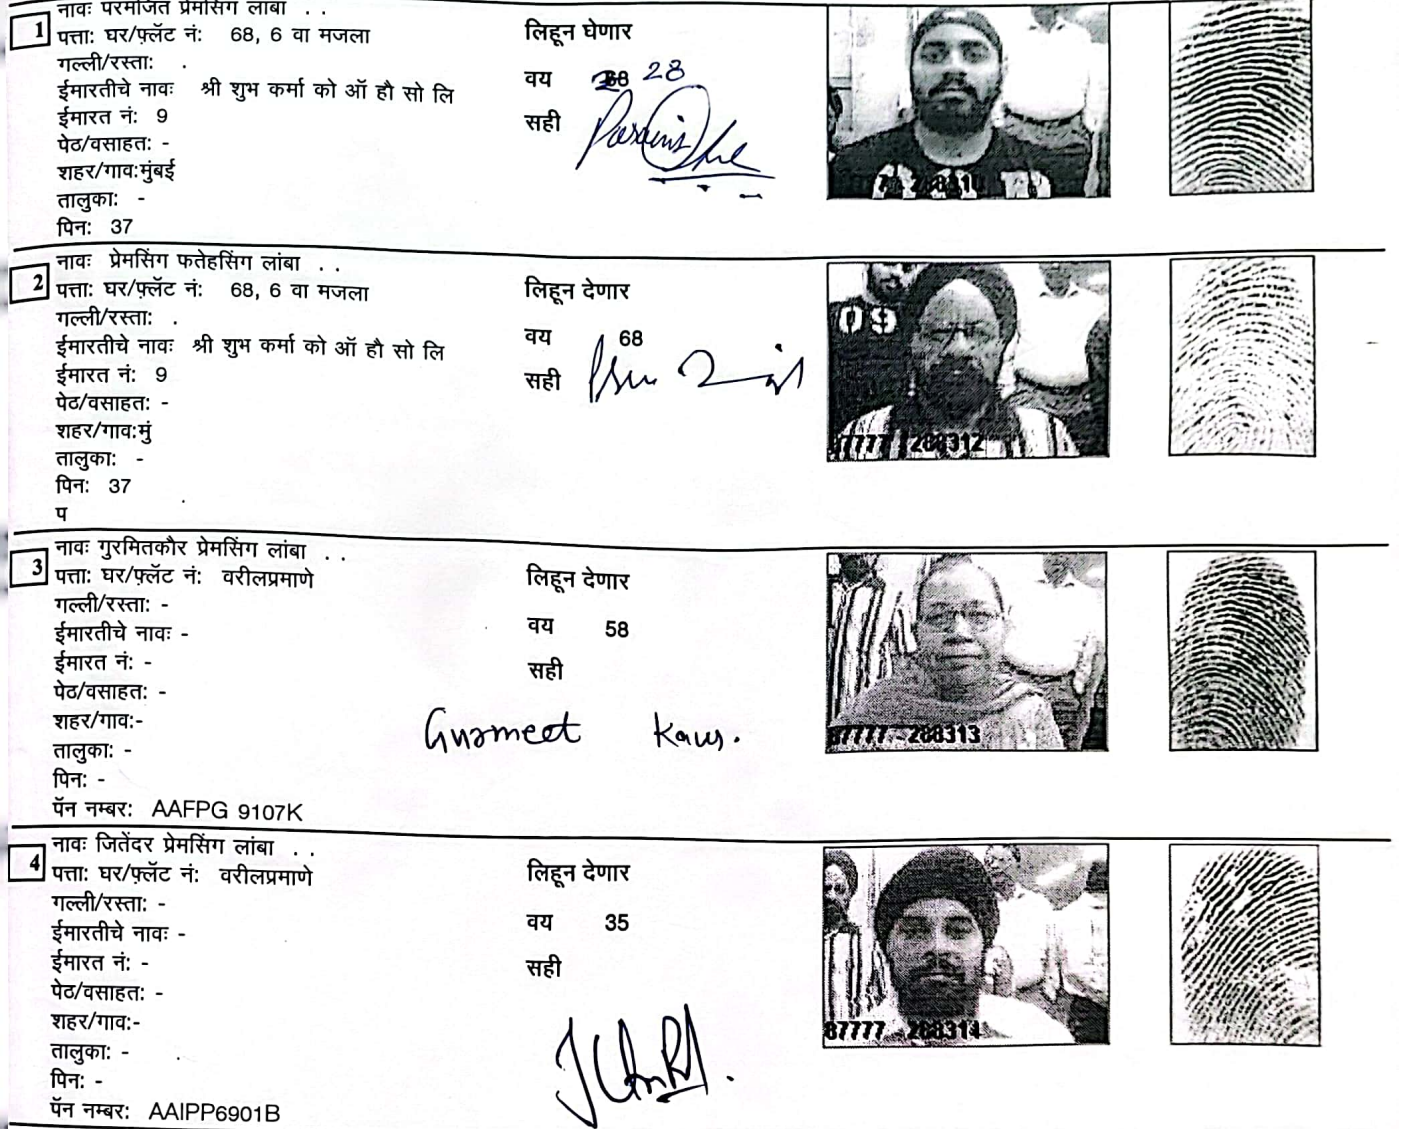 1
नावः परमजित प्रेमसिंग लांबा . .
पत्ताः घर/फ़्लॅट नं: 68, 6 वा मजला
गल्ली/रस्ताः .
ईमारतीचे नावः श्री शुभ कर्मा को ऑ हौ सो लि
ईमारत नं: 9
पेठ/वसाहतः -
शहर/गाव:मुंबई
तालुकाः -
पिनः 37
लिहून घेणार
वय 28
सही
2
नावः प्रेमसिंग फतेहसिंग लांबा . .
पत्ताः घर/फ़्लॅट नं: 68, 6 वा मजला
गल्ली/रस्ताः .
ईमारतीचे नावः श्री शुभ कर्मा को ऑ हौ सो लि
ईमारत नं: 9
पेठ/वसाहतः -
शहर/गाव:मुं
तालुकाः -
पिनः 37
प
लिहून देणार
वय 68
सही
09
87777 - 288312
3
नावः गुरमितकौर प्रेमसिंग लांबा . .
पत्ताः घर/फ़्लॅट नं: वरीलप्रमाणे
गल्ली/रस्ताः -
ईमारतीचे नावः -
ईमारत नं: -
पेठ/वसाहतः -
शहर/गाव:-
तालुकाः -
पिनः -
पॅन नम्बरः AAFPG 9107K
लिहून देणार
वय 58
सही
Gurmeet Kaur.
87777 - 288313
4
नावः जितेंदर प्रेमसिंग लांबा . .
पत्ताः घर/फ़्लॅट नं: वरीलप्रमाणे
गल्ली/रस्ताः -
ईमारतीचे नावः -
ईमारत नं: -
पेठ/वसाहतः -
शहर/गाव:-
तालुकाः -
पिनः -
पॅन नम्बरः AAIPP6901B
लिहून देणार
वय 35
सही
87777 - 288314